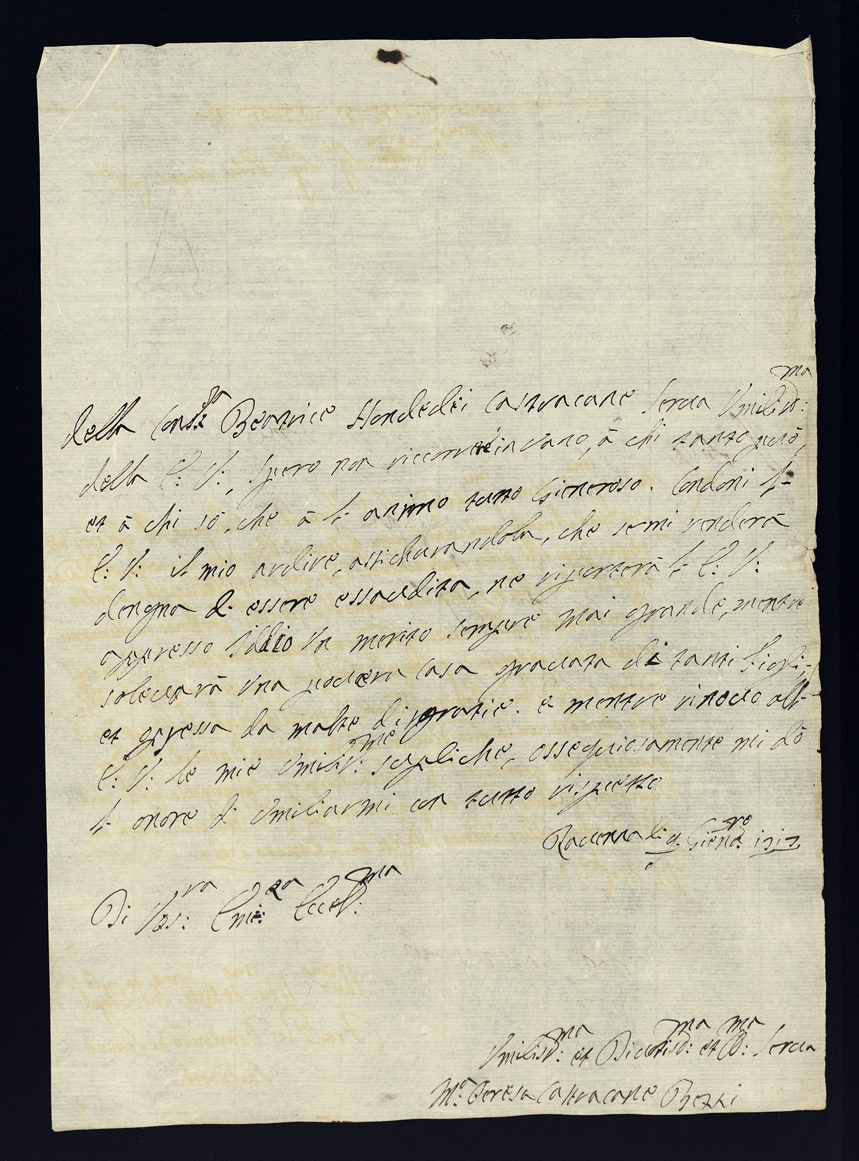 della Cont:ssa Beatrice Hondedei Castracane Serua Vmilis:ma
della E: V:, spero non ricorreré in vano, à chi tanto può,
et à chi sò, che à l' animo tutto Gieneroso. Condoni l'
E: V: il mio ardire, assichurandola, che se mi renderà
dengna d' essere essaudita, ne riporterà l' E: V:
appresso Iddio Vn merito sempre mai grande, mentre
soleuarà Vna pouera Casa grauata di tanti Figli,
et opressa da molte disgratie. e mentre rinouo all'
E: V: le mie Vmilis:me supliche, ossequiosamente mi dò
l' onore d' Vmiliarmi con tutto rispetto
Rauenna li 9. Gien:ro 1717
Di Vos:ra Emi:za Eccel:ma
Vmilis:ma et Diuotis:ma et O:ma Serua
M:a Teresa Castracane Pezzi